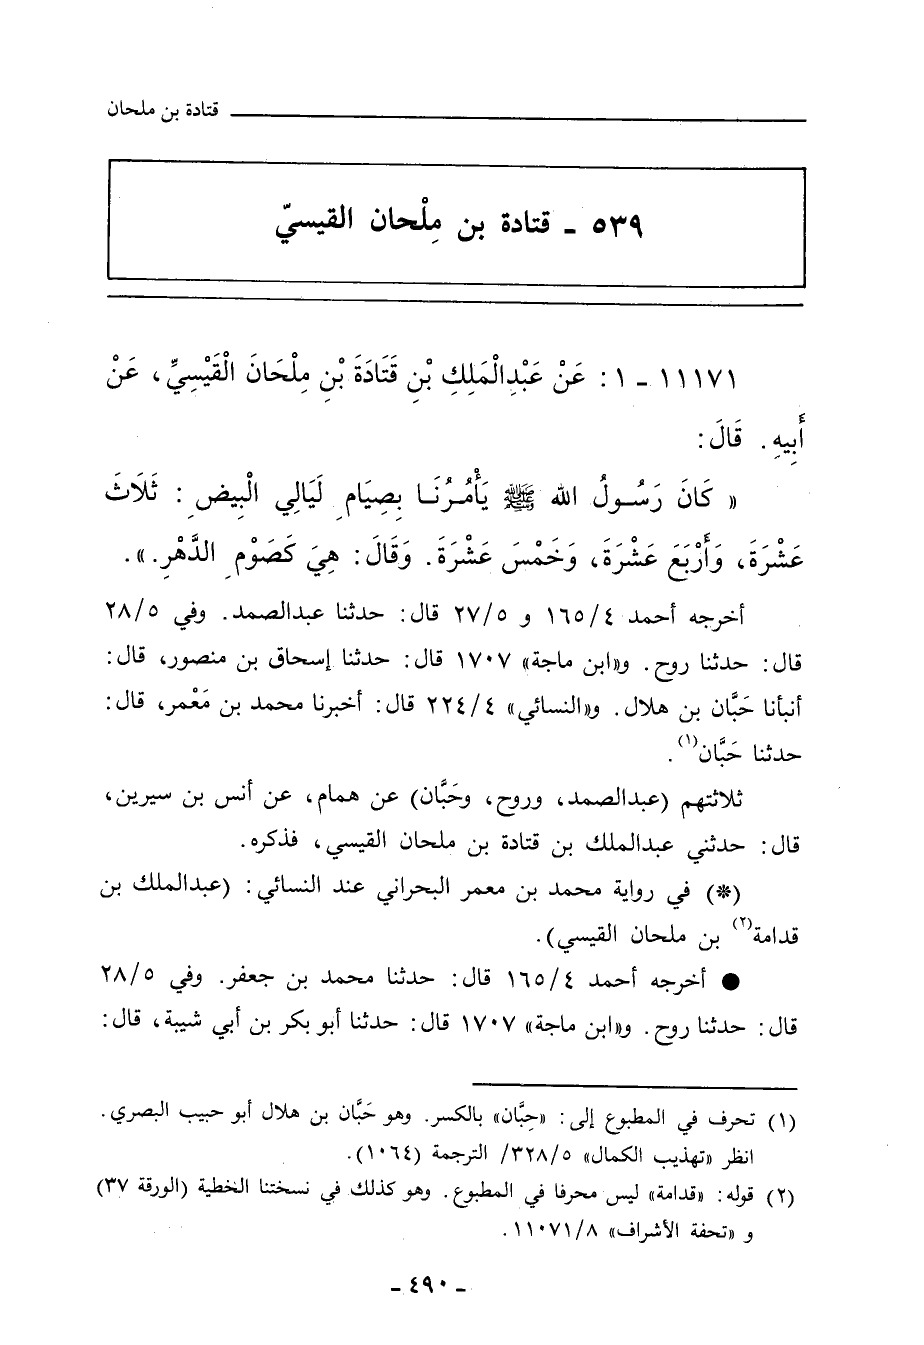 قتادة بن ملحان
٥٣٩ - قتادة بن مِلْحان القيسيّ
١١١٧١ - ١ : عَنْ عَبْدِالْمَلِكِ بْنِ قَتَادَةَ بْنِ مِلْحَانَ الْقَيْسِيِّ، عَنْ
أَبِيهِ. قَالَ:
« كَانَ رَسُـولُ الله ﷺ يَأْمُـرُنَـا بِصِيَامِ لَيَالِي الْبِيضِ : ثَلَاثَ
عَشْرَةَ، وَأَرْبَعَ عَشْرَةَ، وَخَمْسَ عَشْرَةَ. وَقَالَ: هِيَ كَصَوْمِ الدَّهْرِ.».
أخرجه أحمد ١٦٥/٤ و ٢٧/٥ قال: حدثنا عبدالصمد. وفي ٢٨/٥
قال: حدثنا روح. و«ابن ماجة» ١٧٠٧ قال: حدثنا إسحاق بن منصور، قال:
أنبأنا حَبَّان بن هلال. و«النسائي» ٢٢٤/٤ قال: أخبرنا محمد بن مَعْمر، قال:
حدثنا حَبَّان(١).
ثلاثتهم (عبدالصمد، وروح، وحَبَّان) عن همام، عن أنس بن سيرين،
قال: حدثني عبدالملك بن قتادة بن ملحان القيسي، فذكره.
(*) في رواية محمد بن معمر البحراني عند النسائي: (عبدالملك بن
قدامة(٢) بن ملحان القيسي).
● أخرجه أحمد ١٦٥/٤ قال: حدثنا محمد بن جعفر. وفي ٢٨/٥
قال: حدثنا روح. و«ابن ماجة» ١٧٠٧ قال: حدثنا أبو بكر بن أبي شيبة، قال:
(١) تحرف في المطبوع إلى: «حِبَّان» بالكسر. وهو حَبَّان بن هلال أبو حبيب البصري.
انظر «تهذيب الكمال» ٣٢٨/٥/ الترجمة (١٠٦٤).
(٢) قوله: «قدامة» ليس محرفا في المطبوع. وهو كذلك في نسختنا الخطية (الورقة ٣٧)
و «تحفة الأشراف» ١١٠٧١/٨.
- ٤٩٠ -